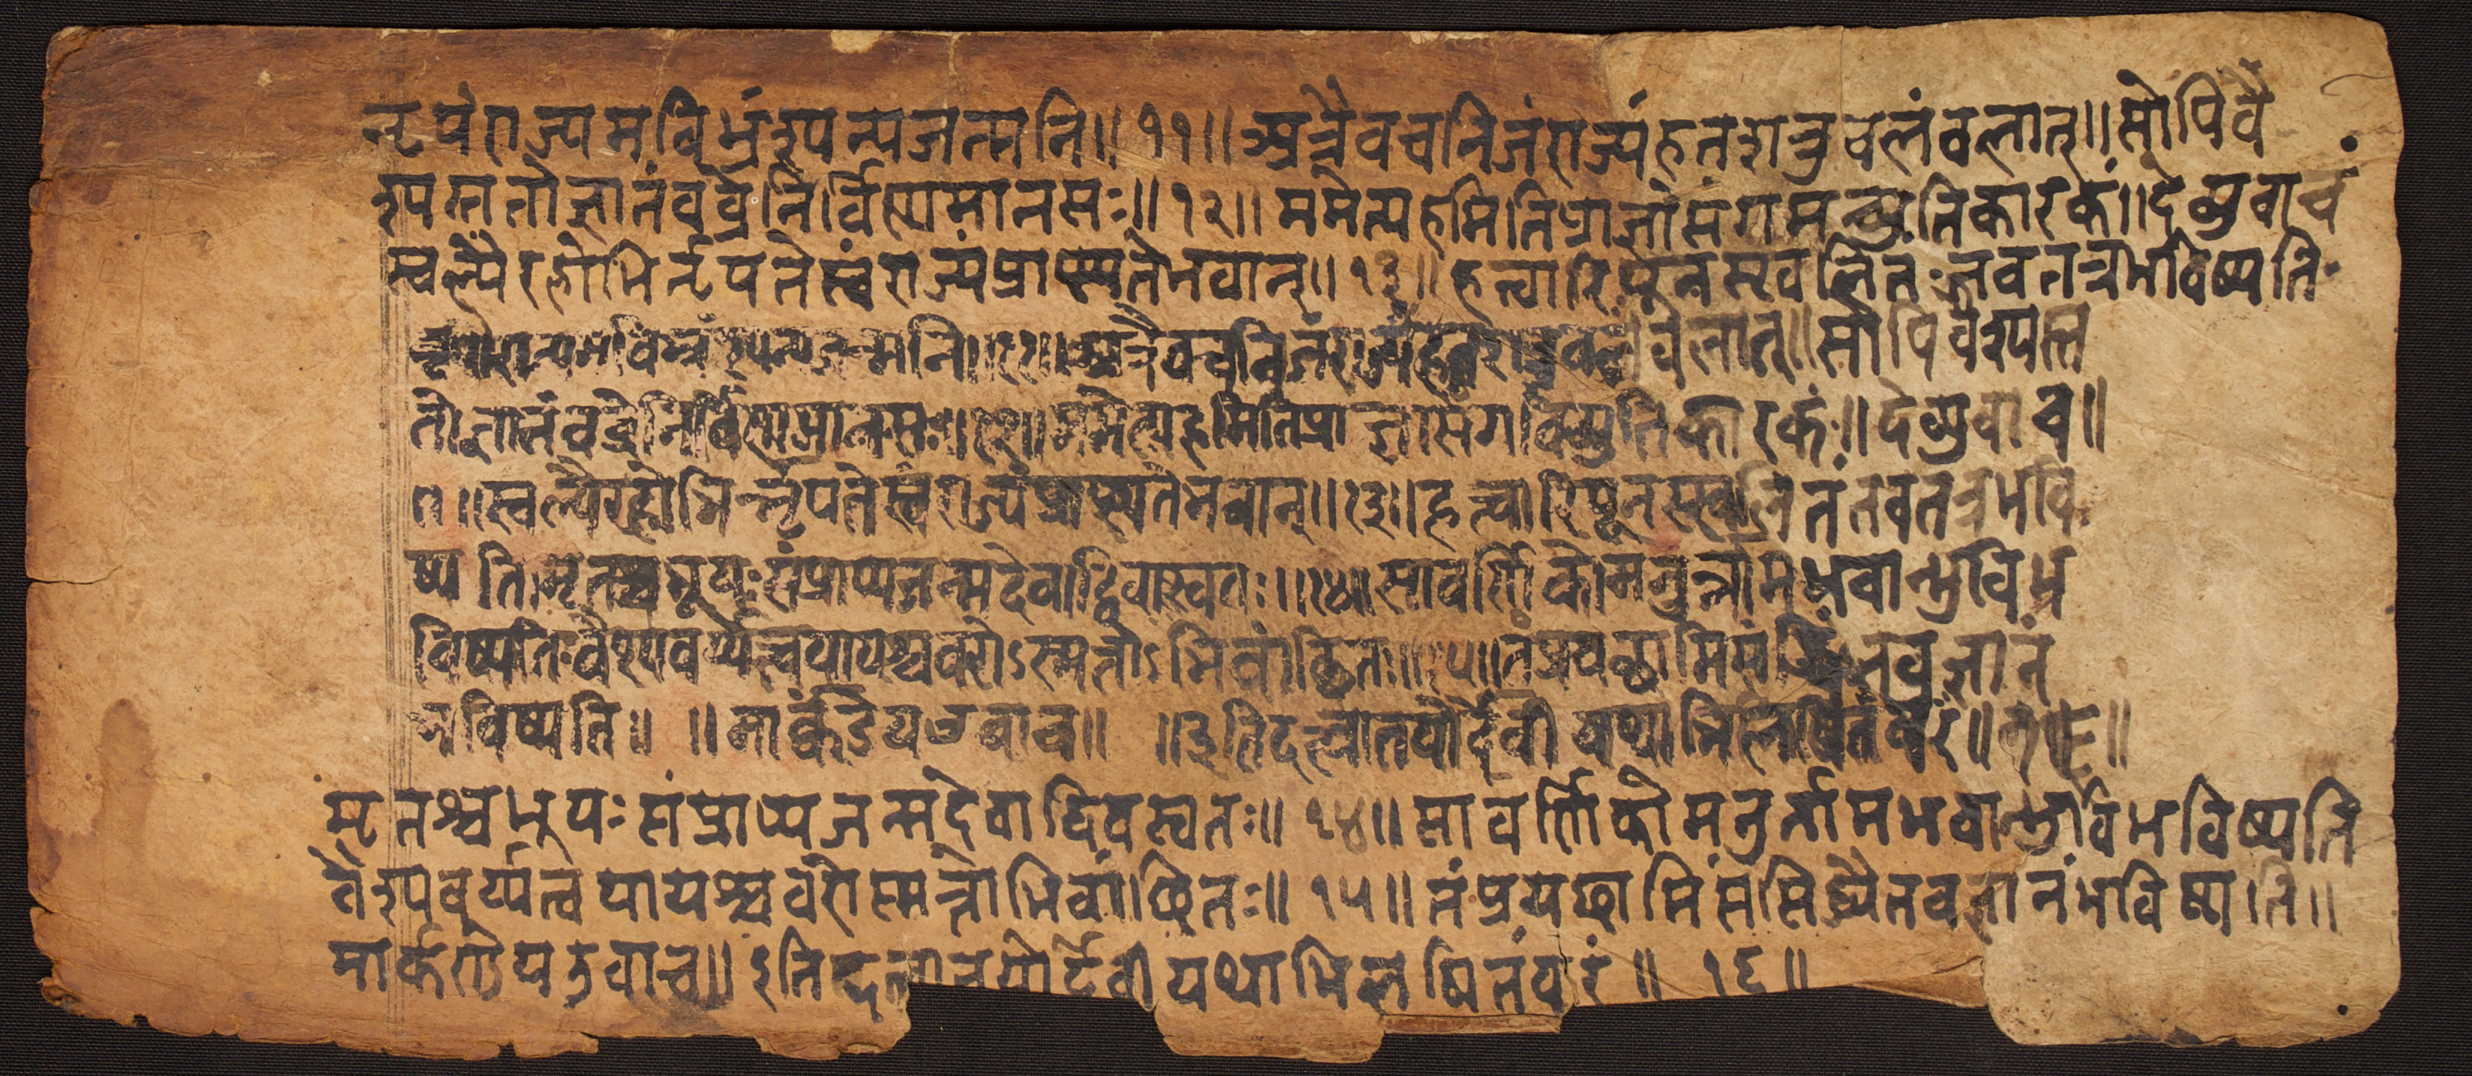 नृपोराज्यमविभ्रंश्यन्यजन्मनि॥११॥अत्रैवचनिजंराज्यंहतशत्रुबलंबलात्॥सोपिवै
श्यस्ततोज्ञानंवव्रेनिर्विण्णमानसः॥१२॥ममेत्यहमितिप्राज्ञःसंगमच्युतिकारकं॥देव्युवाच
स्वल्पैरहोभिर्नृपतेस्वंराज्यंप्राप्स्यतेभवान्॥१३॥हत्वारिपूनस्खलितंतवतत्रभविष्यति
नृपोराज्यमविभ्रंश्यन्यजन्मनि॥११॥अत्रैवचनिजंराज्यंहतशत्रुबलंबलात्॥सोपिवैश्यस्त
तोज्ञानंवव्रेनिर्विण्णमानसः॥१२॥ममेत्यहमितिप्राज्ञःसंगविच्युतिकारकं॥देव्युवाच॥
॥स्वल्पैरहोभिर्नृपतेस्वंराज्यंप्राप्स्यतेभवान्॥१३॥हत्वारिपूनस्खलितंतवतत्रभवि
ष्यतिमृतश्चभूयःसंप्राप्यजन्मदेवाद्विवस्वतः॥१४॥सावर्णिकोमनुर्नामभवान्भुविभ
विष्यतिवैश्यवर्य्यत्वयायश्चवरोऽस्मत्तोऽभिवांछितः॥१५॥तंप्रयछामिसंसिद्ध्यैतवज्ञानं
भविष्यति॥ ॥मार्कंडेयउवाच॥ ॥इतिदत्वातयोर्देवीयथाभिलषितंवरं॥१६॥
मृतश्चभूयःसंप्राप्यजन्मदेवाद्विवस्वतः॥१४॥सावर्णिकोमनुर्नामभवान्भुविभविष्यति
वैश्यवर्य्यत्वयायश्चवरोस्मत्तोभिवांछितः॥१५॥तंप्रयछामिसंसिद्ध्यैतवज्ञानंभविष्यति॥
मार्कण्डेयउवाच॥इतिदत्वातयोर्देवीयथाभिलषितंवरं॥१६॥